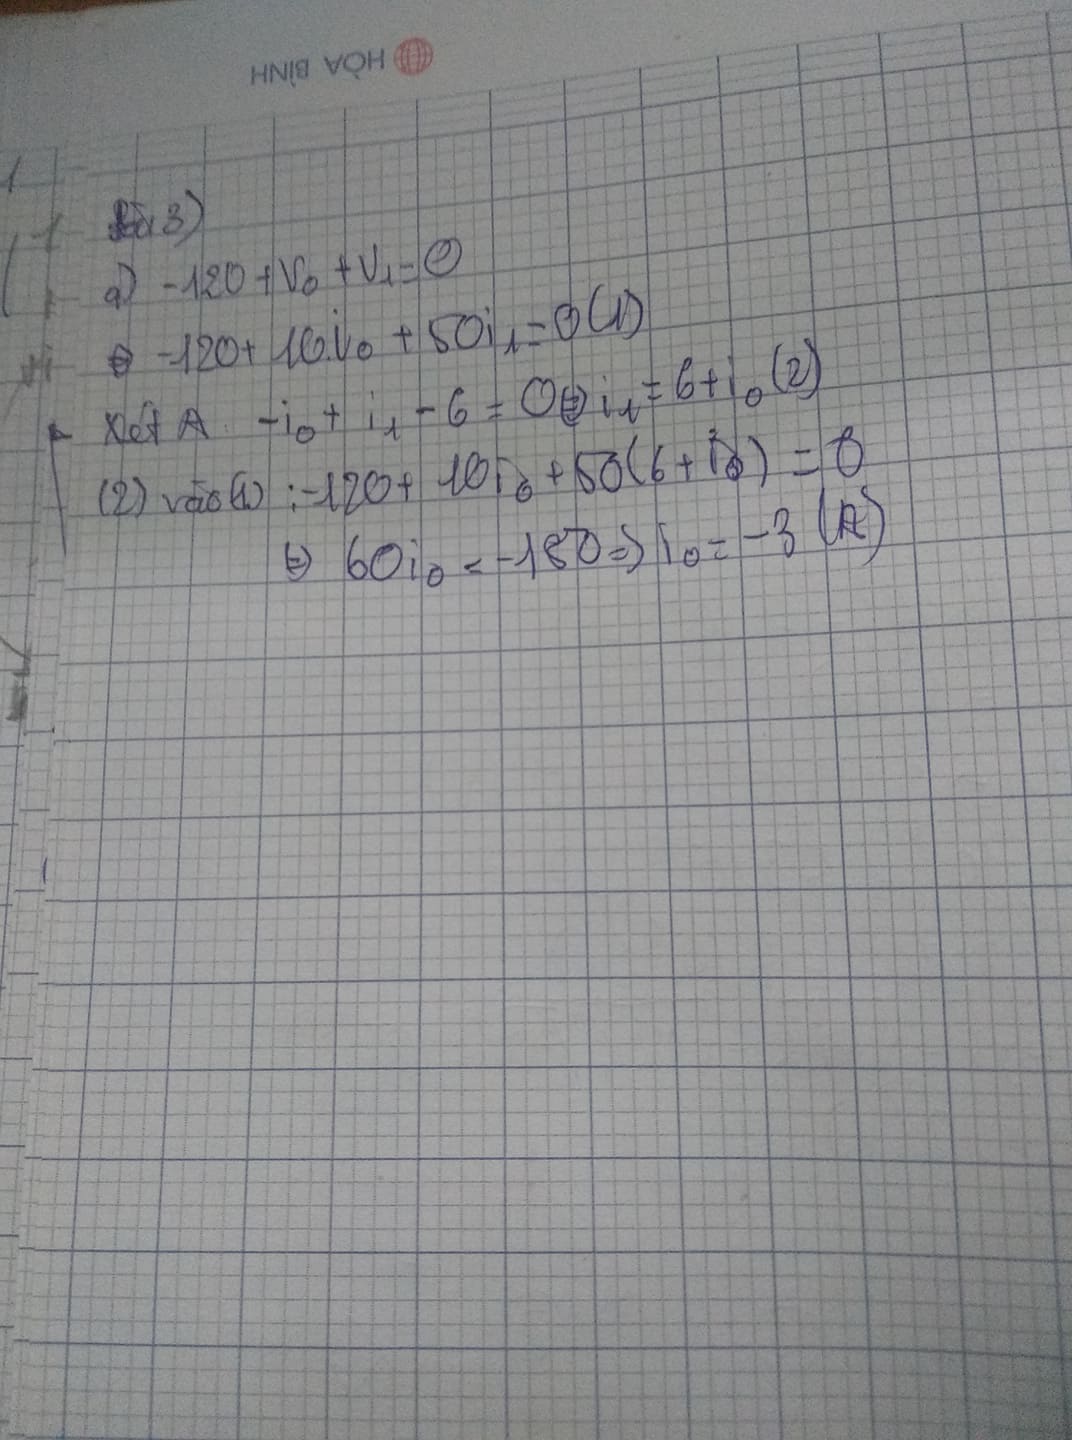 HÒA BÌNH
Bài 3)
a) -120 + V₀ + V₁ = 0
⇔ -120 + 10.i₀ + 50i₁ = 0 (1)
Xét A: -i₀ + i₁ - 6 = 0 ⇔ i₁ = 6 + i₀ (2)
(2) vào (1): -120 + 10i₀ + 50(6 + i₀) = 0
⇔ 60i₀ = -180 ⇒ i₀ = -3 (A)